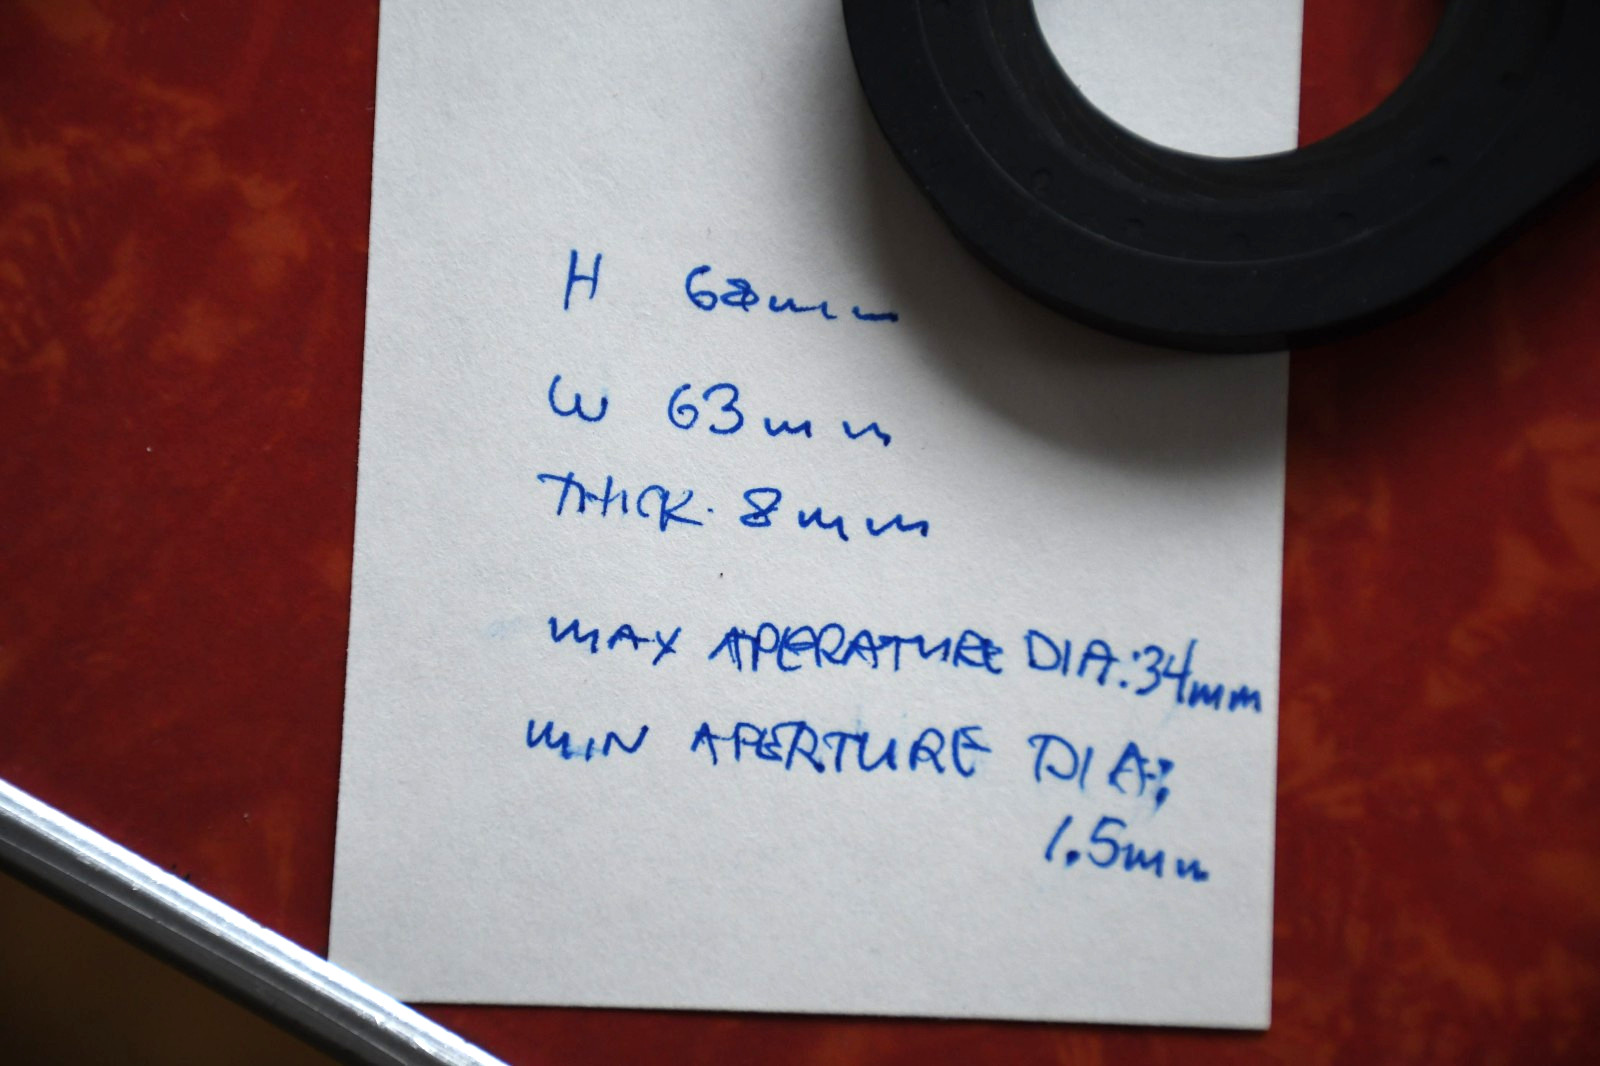 H 68mm
W 63mm
THICK. 8mm
MAX APERATURE DIA.:34mm
MIN APERTURE DIA:
1.5mm